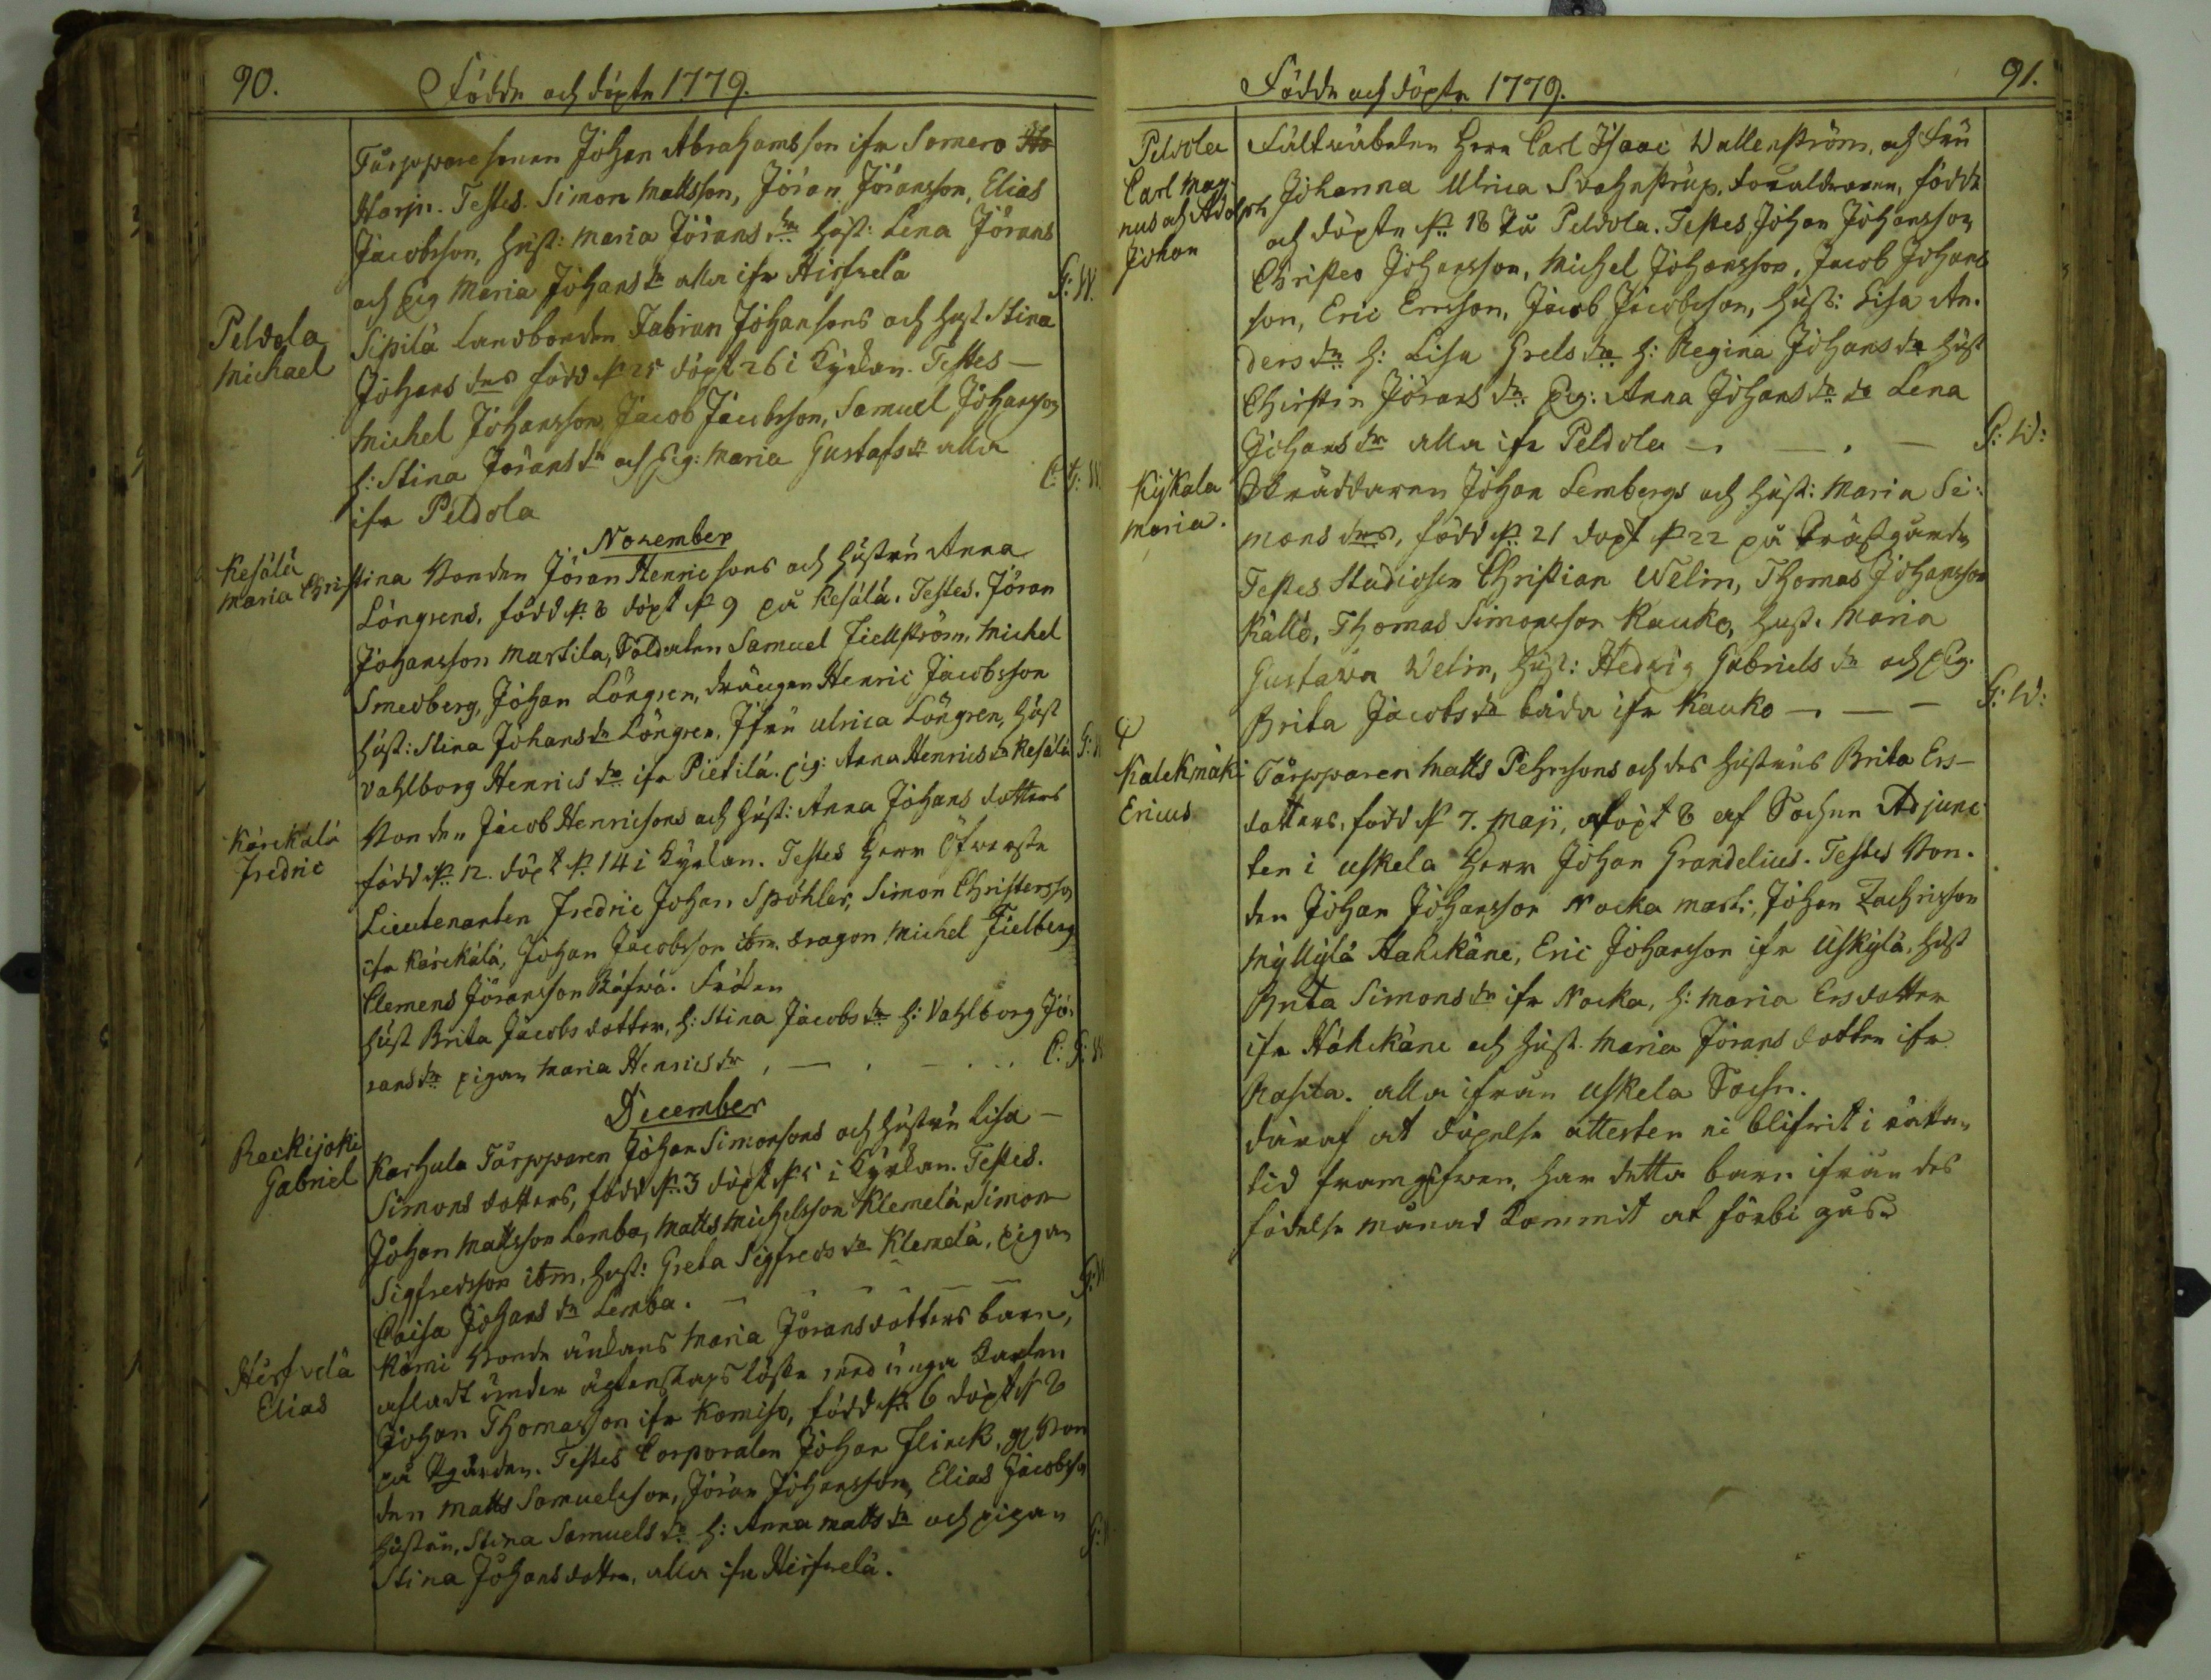 90.
Födde och döpte 1779.
Torpparesonen Johan Abrahamsson ifr Somero
Harju. Testes. Simon Mattsson, Jöran Jöransson, Elias
Jacobsson, hust: Maria Jörans dr hust: Lena Jörans
och Pig Maria Johans dr alla ifr Hirfvelä
G: W.
Peldola
Michael
Sipilä Landbonden Fabian Johansons och hust Stina
Johans drs född d 25 döpt 26 i Kyrkan. Testes —
Michel Johansson, Jacob Jacobsson, Samuel Johansson
h: Stina Jörans dr och Pig: Maria Gustafs dr alla
ifr Peldola
C. G: W.
November
Kesälä
Maria Christina
Bonden Jöran Henricsons och hustru Anna
Löngrens, född d 8 döpt d 9 på Kesälä. Testes. Jöran
Johansson Martila, Soldaten Samuel Fiellström, Michel
Smedberg, Johan Löngren, drängen Henric Jacobsson
hust: Stina Johans dr Löngren, Jfru Ulrica Löngren, hust
Vahlborg Henrics dr ifr Pietilä. Pig: Anna Henrics dr Kesälä
G: W
Kärckälä
Fredric
Bonden Jacob Henricsons och hust: Anna Johans dotters
född d 12. döpt d 14 i Kyrkan. Testes Herr Öfwerste
Lieutenanten Fredric Johan Spöhler, Simon Christersson
ifr Kärckälä, Johan Jacobsson ibm. dragon Michel Fielberg
Clemens Jöransson
hust Brita Jacobs dotter, h: Stina Jacobs dr h: Vahlborg Jö-
rans dr pigan Maria Henrics dr , — . — . . .
C. G: W
December
Reckijoki
Gabriel
Karhula Torpparen Johan Simonsons och hustru Lisa —
Simons dotters, född d 3 döpt d 5 i Kyrkan. Testes.
Johan Mattsson Lemba, Matts Michelsson Klemelä, Simon
Sigfredsson ibm, hust: Greta Sigfreds dr Klemelä, pigan
Caisa Johans dr Lemba. — — — — —
G: W
Hirfvelä
Elias
Rämi Bonde änkans Maria Jöransdotters barn,
afladt under ägtenskaps löfte med unga Karlen
Johan Thomasson ifr Komiso, född d 6 döpt d 8
på Pgården. Testes Corporalen Johan Flinck, Bon
den Matts Samuelsson, Jöran Johansson, Elias Jacobsson
hustru, Stina Samuels dr h: Anna Matts dr och pigan
Stina Johansdotter, alla ifr Hirfvelä.
G: W
Födde och döpte 1779.
91.
Peldola
Carl Mag-
nus och Adolph
Johan
Fältväbelen Herr Carl Isaac Wallenström, och Fru
Johanna Ulrica Svahnström, födde
och döpte d 18 på Peldola. Testes Johan Johansson
Christer Johansson, Michel Johansson, Jacob Johans
son, Eric Ersson, Jacob Jacobsson, hust: Lisa An-
ders dr h: Lisa Grels dr h: Regina Johans dr hust
Christin Jörans dr Pig: Anna Johans dr do Lena
Johans dr alla ifr Peldola — . — . —
G: W:
Kijkala
Maria.
Skräddaren Johan Lembergs och hust: Maria Si-
mons drs, född d 21 döpt d 22 på Prästgården
Testes Studiosen Christian Welin, Thomas Johansson
Källö, Thomas Simonsson Kauko, hust. Maria
Gustava Welin, hust: Hedvig Gabriels dr och Pig.
Brita Jacobs dr båda ifr Kauko — — —
G: W:
Kalckmäki
Ericus
Torpparen Matts Pehrssons och des hustrus Brita Ers-
dotters, född d 7. Maji, döpt 8 af Sochne Adjunc
ten i Uskela Herr Johan Grandelius. Testes Bon-
den Johan Johansson Nocka Mart:, Johan Zachrisson
Myllylä Hahckäne, Eric Johansson ifr Uskylä, hust
Brita Simons dr ifr Nocka, h: Maria Ersdotter
ifr Hahckäne och hust. Maria Jörans dotter ifr
Rasila. alla ifrån Uskela Sochn.
däraf at döpelse attesten ei blifwit i rättan
tid framgifwen, har detta barn ifrån des
födelse månad kommit at förbi gås